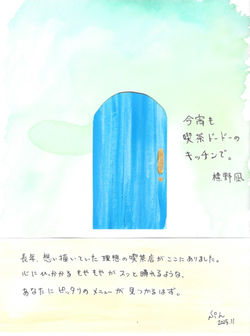 今宵も
喫茶ドードーの
キッチンで。
標野凪
長年、思い描いていた理想の喫茶店がここにありました。
心にひっかかるもやもやがスッと晴れるような、
あなたにピッタリのメニューが見つかるはず。
2023.11